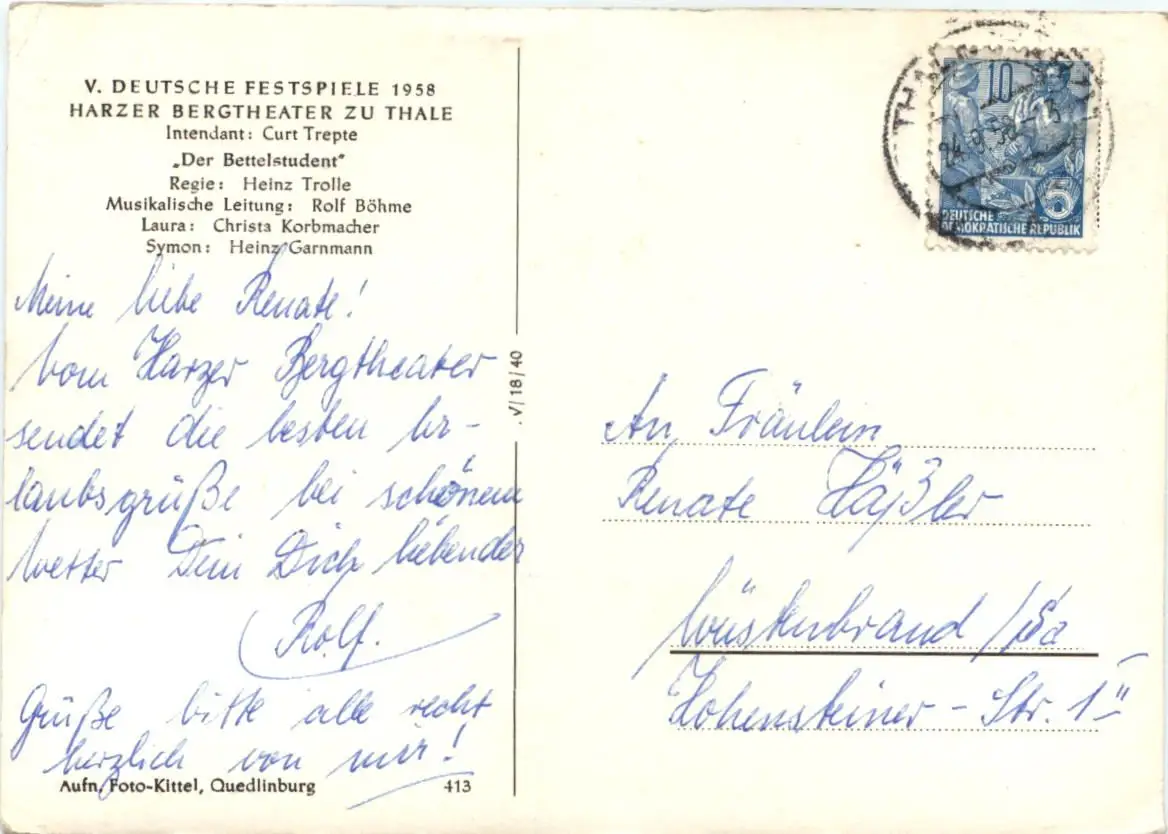 V. DEUTSCHE FESTSPIELE 1958
HARZER BERGTHEATER ZU THALE
Intendant: Curt Trepte
„Der Bettelstudent"
Regie: Heinz Trolle
Musikalische Leitung: Rolf Böhme
Laura: Christa Korbmacher
Symon: Heinz Garnmann
Meine liebe Renate!
Vom Harzer Bergtheater
sendet die besten Ur-
laubsgrüße bei schönem
Wetter Dein Dich liebender
Rolf.
Grüße bitte alle recht
herzlich von mir!
Aufn. Foto-Kittel, Quedlinburg 413
V/18/40
10
24.9.58
5
DEUTSCHE
DEMOKRATISCHE REPUBLIK
An Fräulein
Renate Häßler
Wüstenbrand / Sa
Hohensteiner-Str. 1